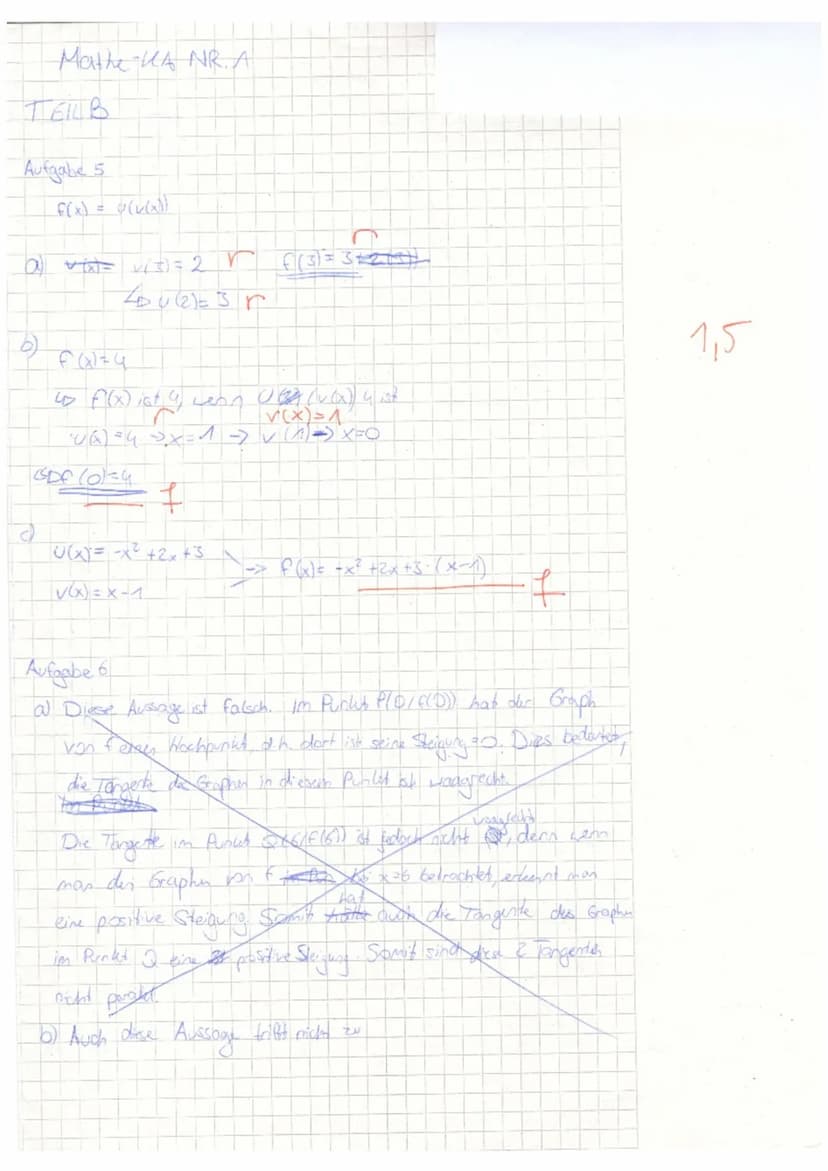 Mathe-KA NR. 1
TEIL B
Aufgabe 5
f(x) = u(v(x))
a) v(x)= v(3) = 2 r f(3) = 3 r
↳ u(2) = 3 r
b) f(x)=4
1,5
↳ f(x) ist 4, wenn u(v(x)) 4 ist
v(x)=1
u(x) = 4 r → x = 1 → v(1) → x=0
↳ f(0)=4 f
c) u(x) = -x² + 2x + 3
→ f(x) = -x² + 2x + 3 · (x-1) f
v(x) = x - 1
Aufgabe 6
a) Diese Aussage ist falsch. Im Punkt P(0/f(0)) hat der Graph
von f einen Hochpunkt, d.h. dort ist seine Steigung = 0. Dies bedeutet,
die Tangente des Graphen in diesem Punkt ist waagrecht.
Im Punkt
waagrecht
Die Tangente im Punkt (6/f(6)) ist jedoch nicht , denn wenn
man den Graphen von f bei x=6 betrachtet, erkennt man
hat
eine positive Steigung. Somit hätte auch die Tangente des Graphen
im Punkt Q eine positive Steigung. Somit sind diese 2 Tangenten
nicht parallel.
b) Auch diese Aussage trifft nicht zu